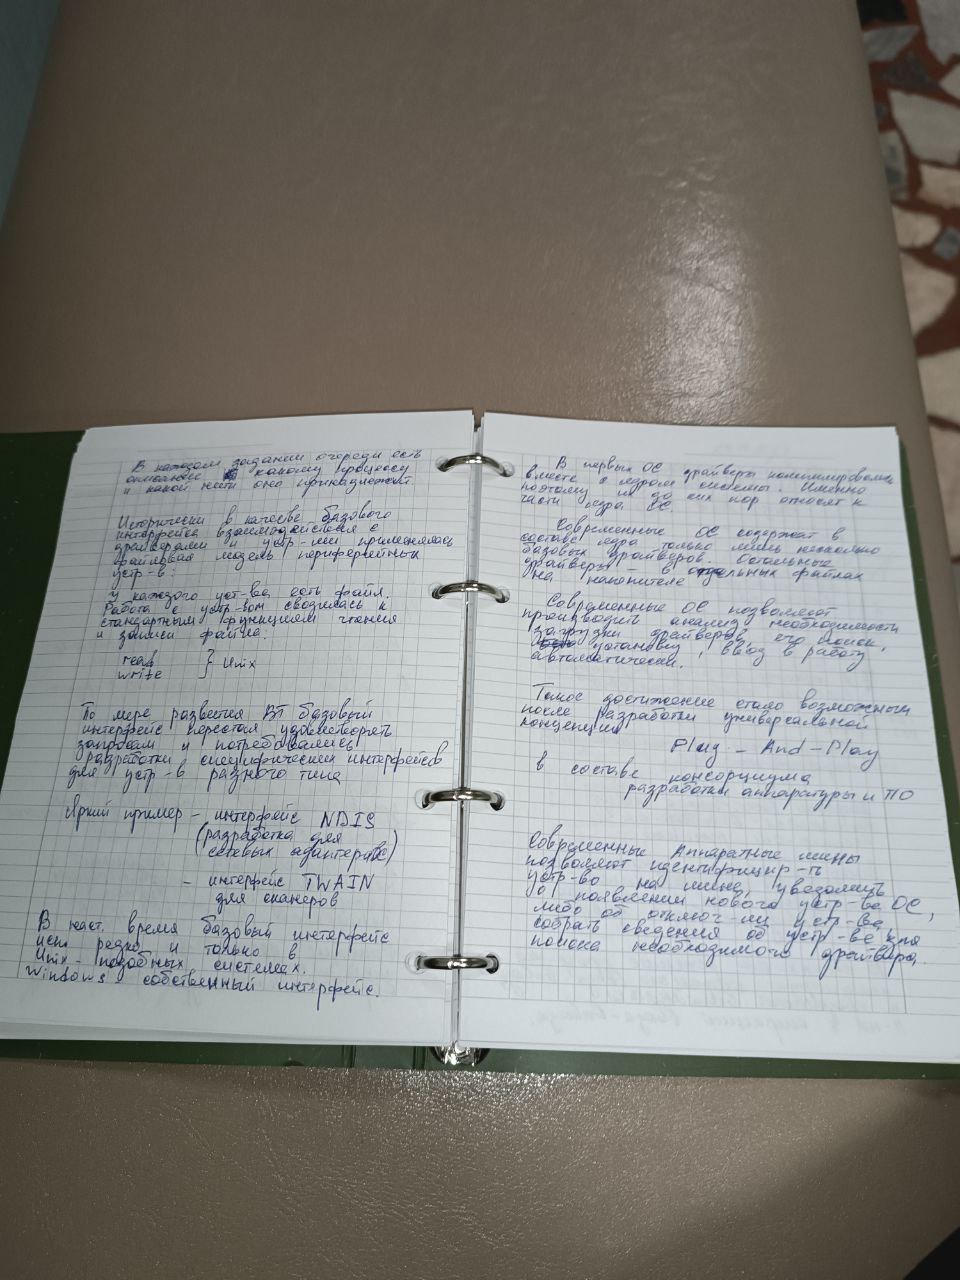 В каждом задании очереди есть
описание какому процессу
и какой нити оно принадлежит.
Исторически в качестве базового
интерфейса взаимодействия с
драйверами и устр-ми применялась
файловая модель периферейных
устр-в:
у каждого уст-ва есть файл.
Работа с устр-вом сводилась к
стандартным функциям чтения
и записи файла:
read
write } Unix
По мере развития ВТ базовый
интерфейс перестал удовлетворять
запросам и потребовались
разработки специфических интерфейсов
для устр-в разного типа
Яркий пример - интерфейс NDIS
(разработка для
сетевых адаптеров)
- интерфейс TWAIN
для сканеров
В наст. время базовый интерфейс
исп редко и только в
Unix-подобных системах.
Windows собственный интерфейс.
В первых ОС драйверы компилировались
вместе с ядром системы. Именно
поэтому их до сих пор относят к
части ядра ОС.
Современные ОС содержат в
составе ядра только лишь несколько
базовых драйверов. Остальные
драйверы - в отдельных файлах
на накопителе
Современные ОС позволяют
производить анализ необходимости
загрузки драйверов, его поиск,
установку, ввод в работу
автоматически.
Такое достижение стало возможным
после разработки универсальной
концепции
Plug - And - Play
в составе консорциума
разработки аппаратуры и ПО
Современные Аппаратные шины
позволяют идентифицир-ть
устр-во на шине, уведомить
о появлении нового устр-ва ОС,
либо об отключ-ии устр-ва,
собрать сведения об устр-ве для
поиска необходимого драйвера.